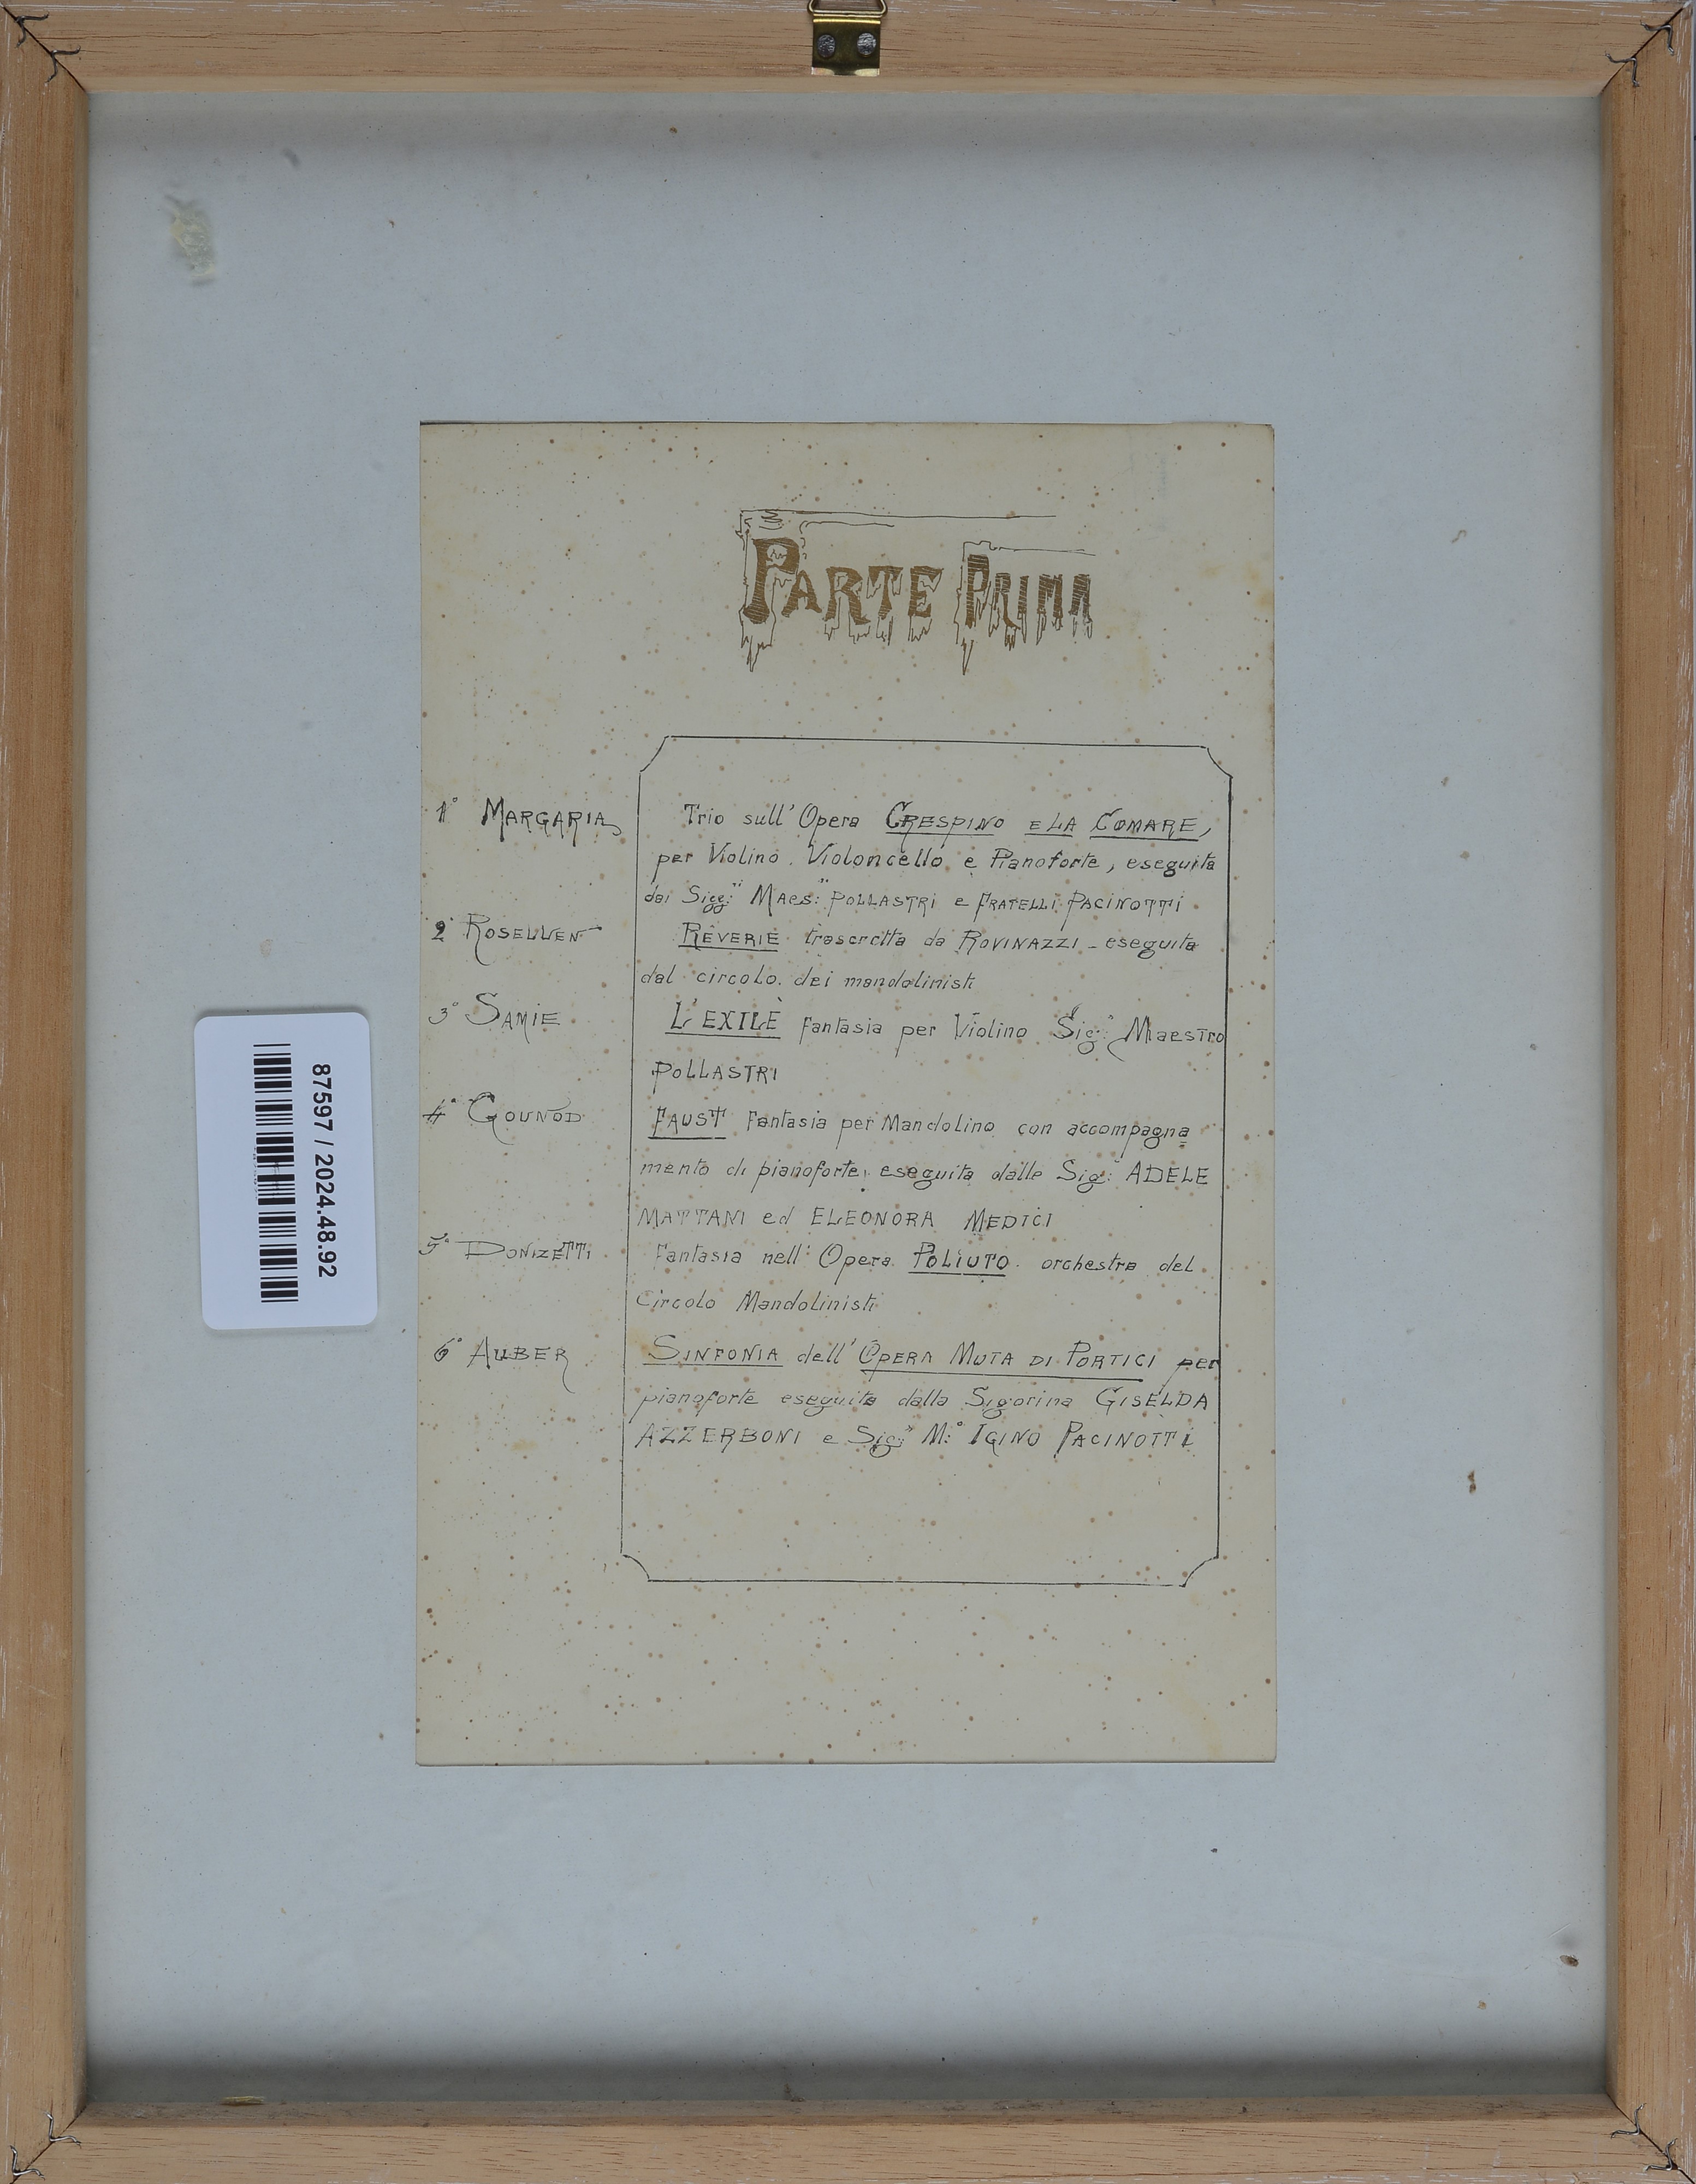 PARTE PRIMA
1° MARGARIA Trio sull' Opera CRESPINO E LA COMARE,
per Violino. Violoncello e Pianoforte, eseguita
dai Sigg:ri Maes:ri POLLASTRI e FRATELLI PACINOTTI.
2° ROSELLEN RÊVERIE trascritta da ROVINAZZI - eseguita
dal circolo dei mandolinisti
3° SAMIE L'EXILÈ Fantasia per Violino Sig:r Maestro
POLLASTRI
4° GOUNOD FAUST Fantasia per Mandolino con accompagna
mento di pianoforte, eseguita dalle Sig: ADELE
MATTANI ed ELEONORA MEDICI
5° DONIZETTI Fantasia nell' Opera POLIUTO. orchestra del
Circolo Mandolinisti
6° AUBER SINFONIA dell' OPERA MUTA DI PORTICI per
pianoforte eseguita dalla Sigorina GISELDA
AZZERBONI e Sig:r M:° IGINO PACINOTTI
87597 / 2024.48.92